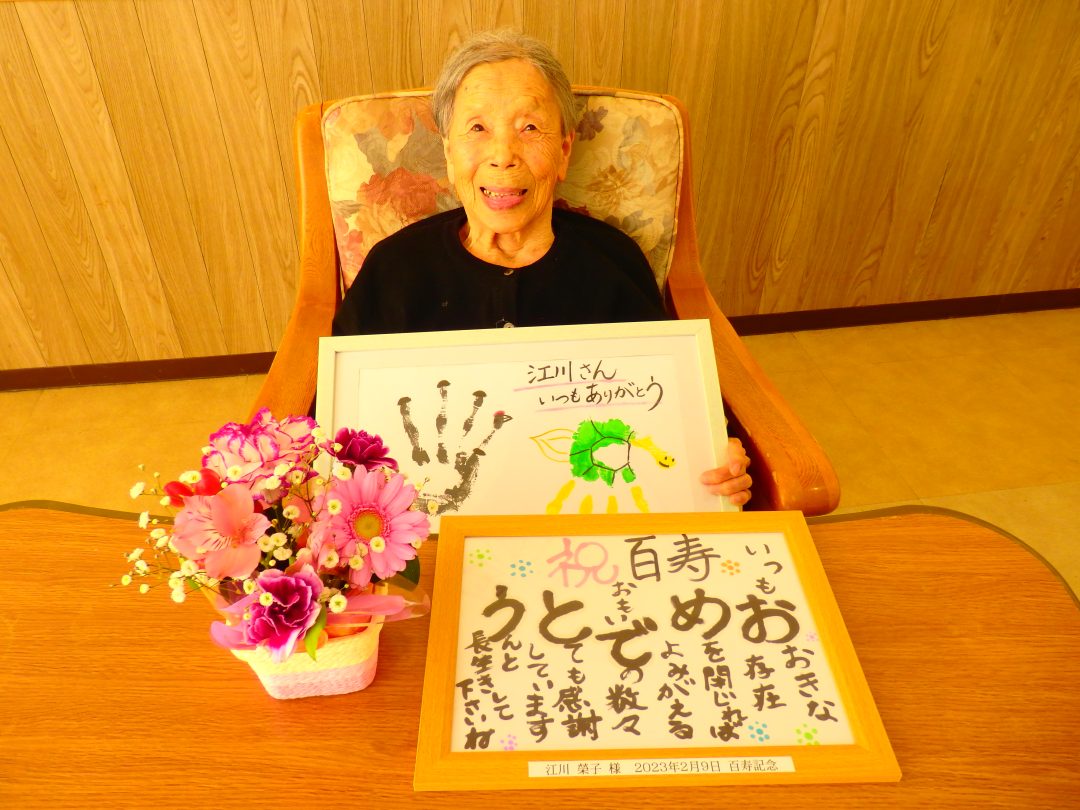 江川さん
いつもありがとう
祝百寿
いつもおおきな
存在
めを閉じれば
よみがえる
おもいでの数々
とても感謝
しています
うんと
長生きして
下さいね
江川 榮子 様 2023年2月9日 百寿記念